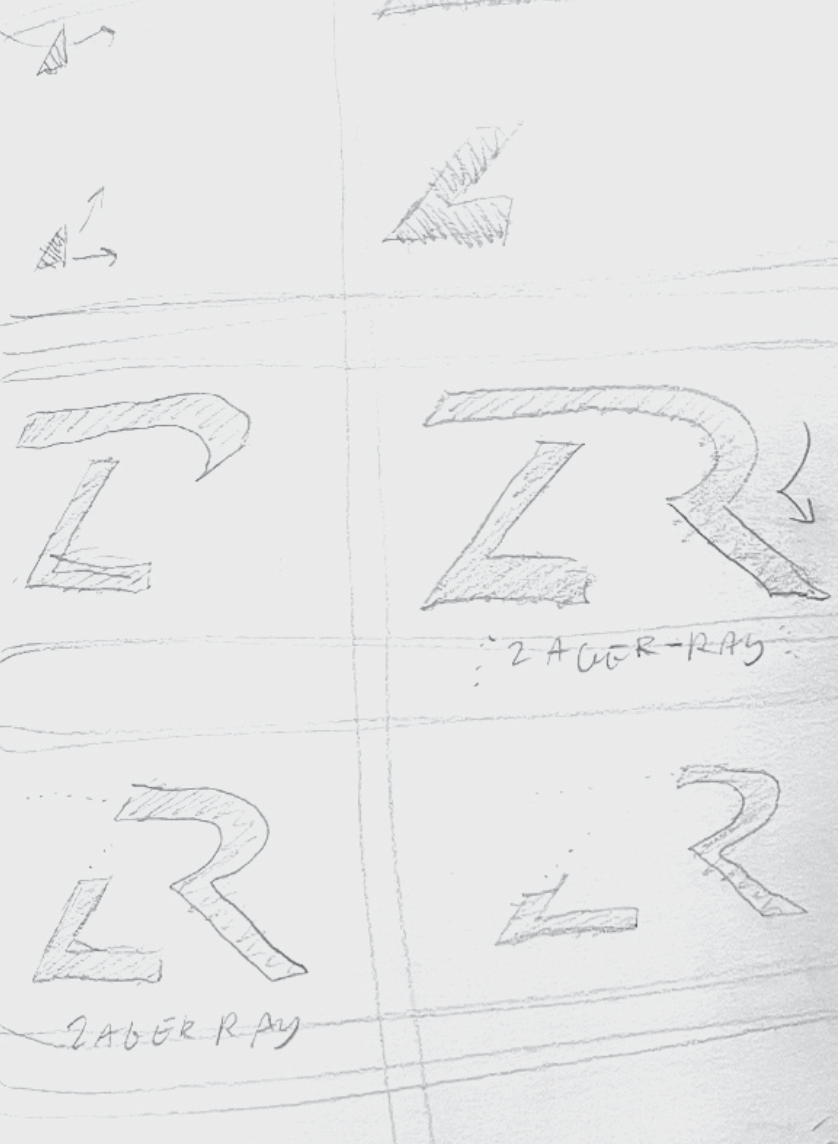 ZAGER-RAY
ZAGER RAY